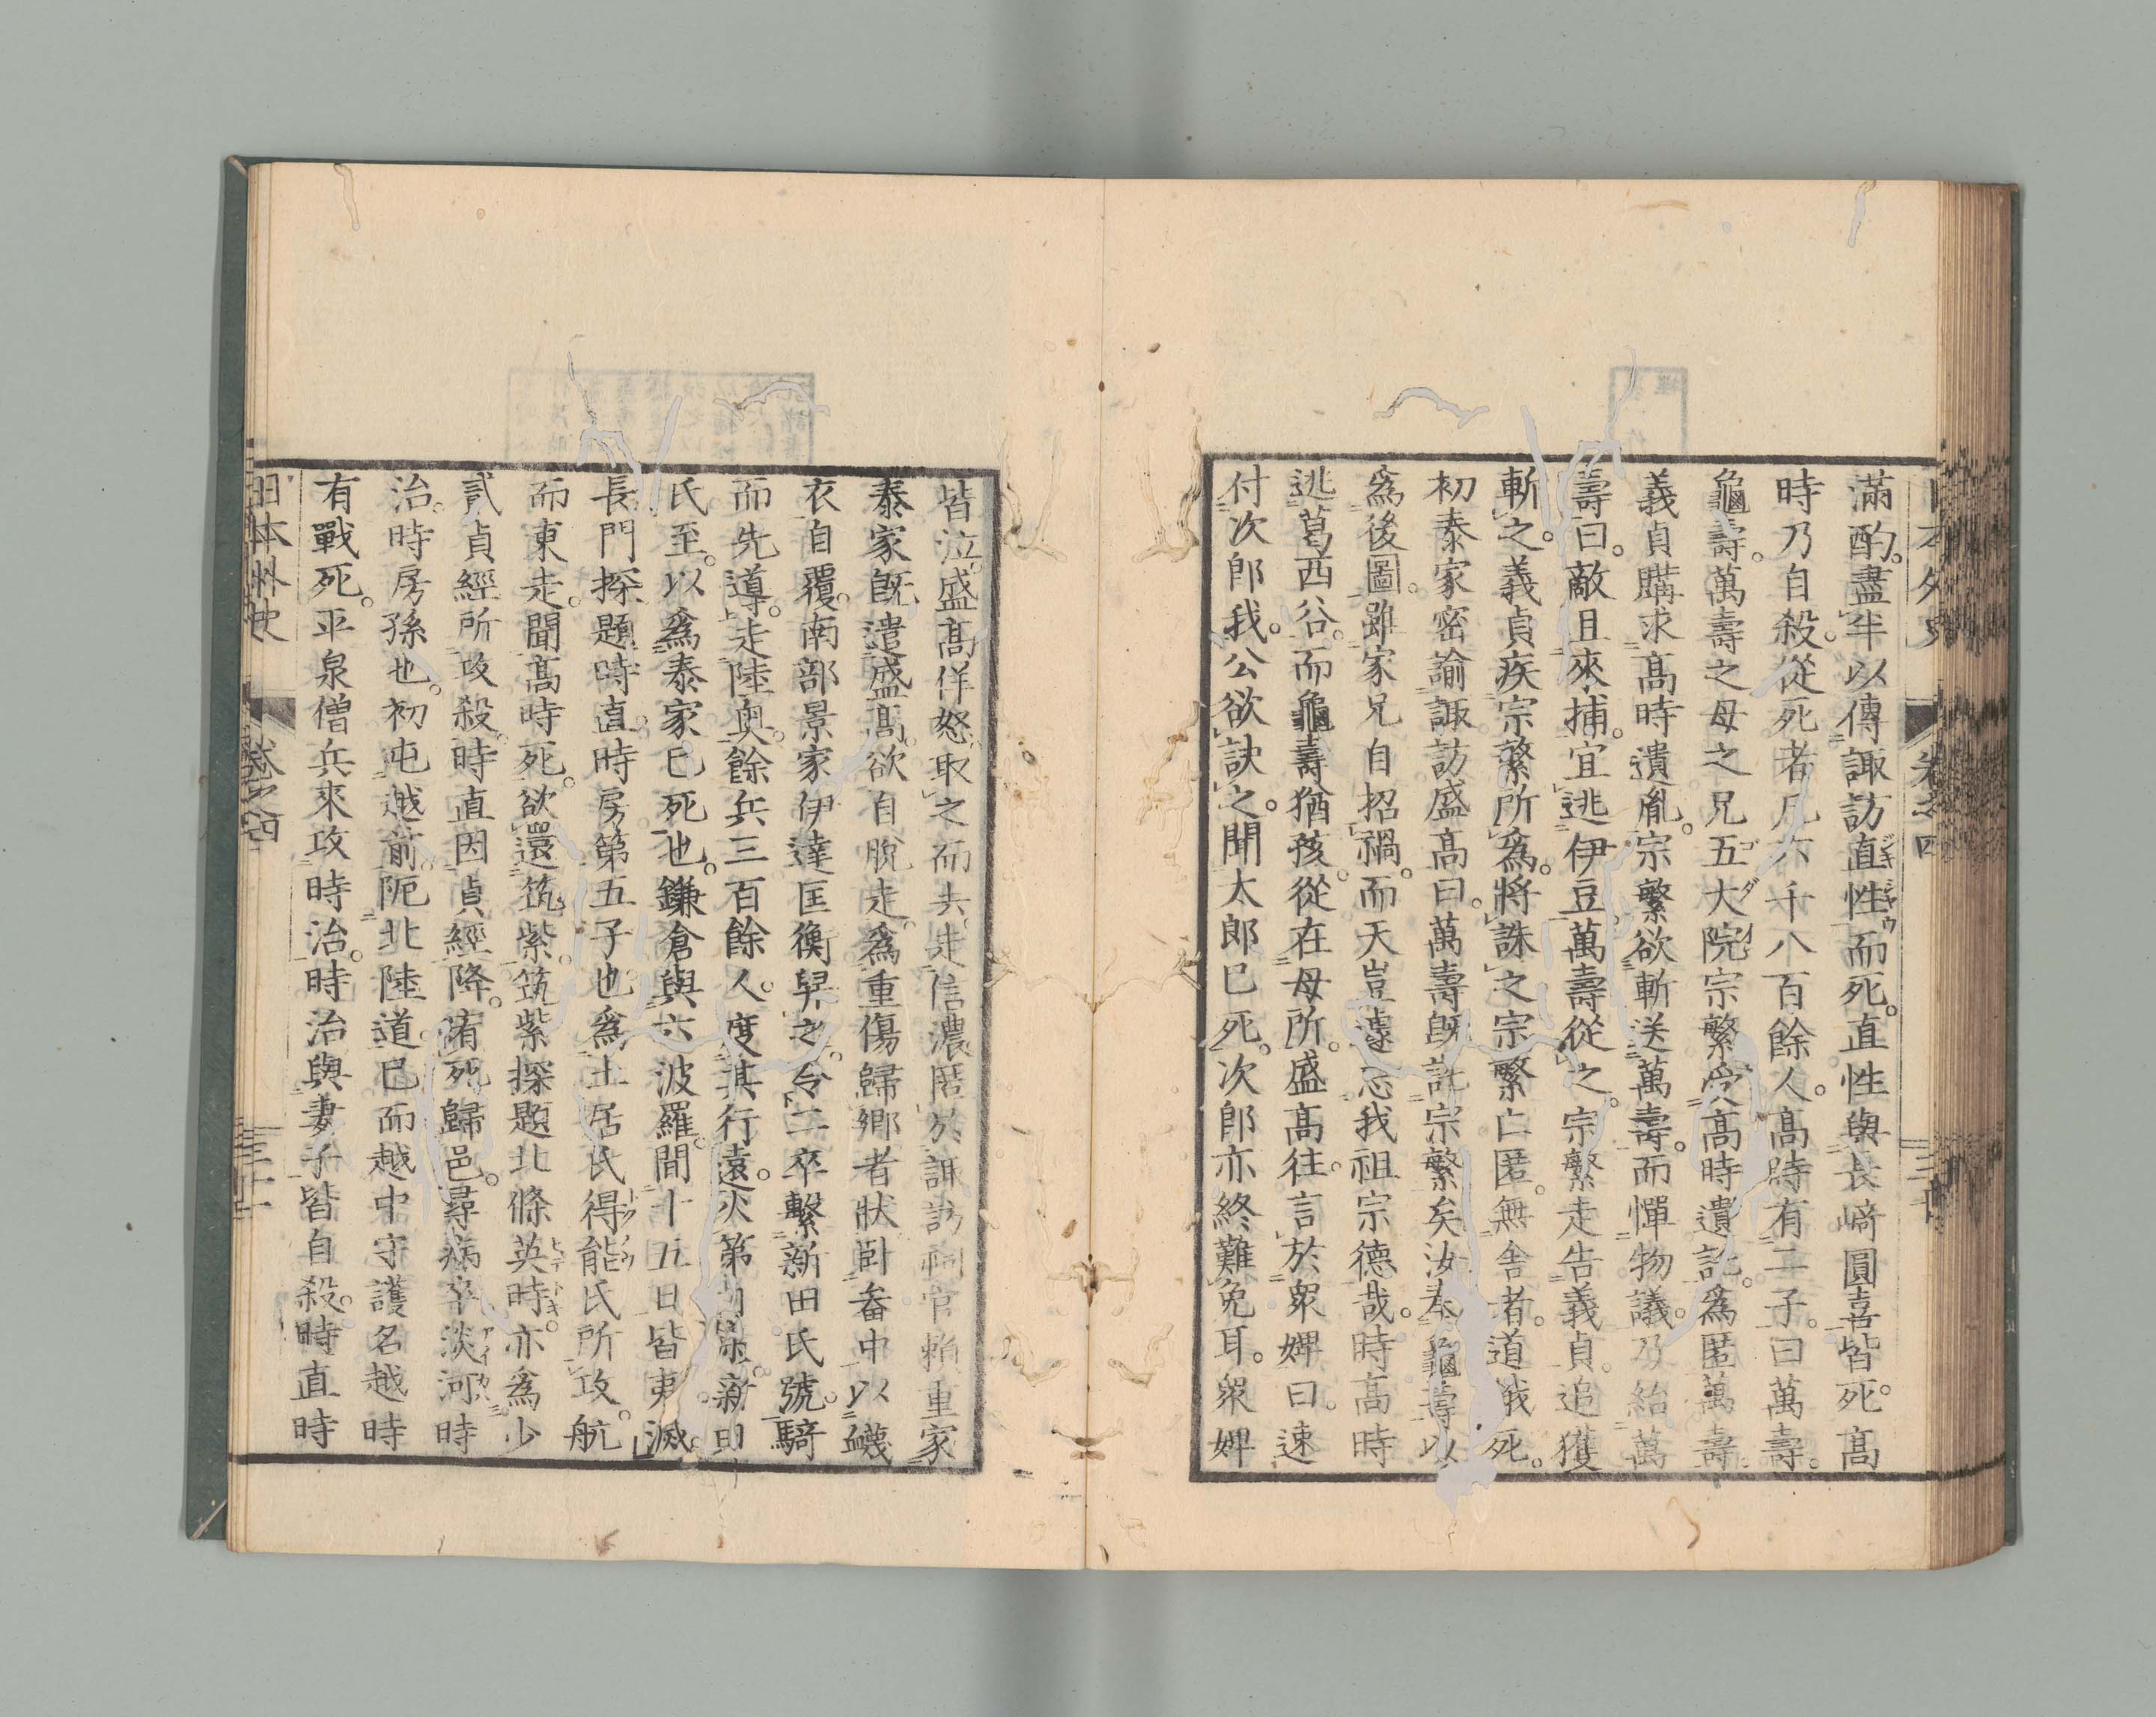 日本外史 卷之四
滿酌。盡半以傳諏訪直性而死。直性與長﨑圓喜皆死。高
時乃自殺。從死者凡六千八百餘人。高時有二子。曰萬壽。
龜壽。萬壽之母之兄五大院宗繁受高時遺託。爲匿萬壽。
義貞購求高時遺胤。宗繁欲斬送萬壽。而憚物議。乃紿萬
壽曰。敵且來捕。宜逃伊豆。萬壽從之。宗繁走告義貞。追獲
斬之。義貞疾宗繁所爲。將誅之。宗繁亡匿。無舍者。道餓死。
初泰家密諭諏訪盛高曰。萬壽既託宗繁矣。汝奉龜壽以
爲後圖。雖家兄自招禍。而天豈遽忘我祖宗德哉。時高時
逃葛西谷。而龜壽猶孩。從在母所。盛高往。言於衆婢曰。速
付次郎我。公欲訣之。聞太郎已死。次郎亦終難免耳。衆婢
皆泣。盛高佯怒取之而去。走信濃匿於諏訪祠官賴重家
泰家既遣盛高。欲自脫走。爲重傷歸鄉者狀。臥畚中。以衊
衣自覆。南部景家伊達匡衡舁之。令二卒繫新田氏號。騎
而先導。走陸奧。餘兵三百餘人。度其行遠。火第自殺。新田
氏至。以爲泰家已死也。鎌倉與六波羅。間十五日皆夷滅。
長門探題時直。時房第五子也。爲土居氏得能氏所攻。航
而東走。聞高時死。欲還筑紫。筑紫探題北條英時。亦爲少
貳貞經所攻殺。時直因貞經降。宥死歸邑。尋病卒。淡河時
治。時房孫也。初屯越前。阨北陸道。已而越中守護名越時
有戰死。平泉僧兵來攻時治。時治與妻子皆自殺。時直時
日本外史 卷之四 三十一